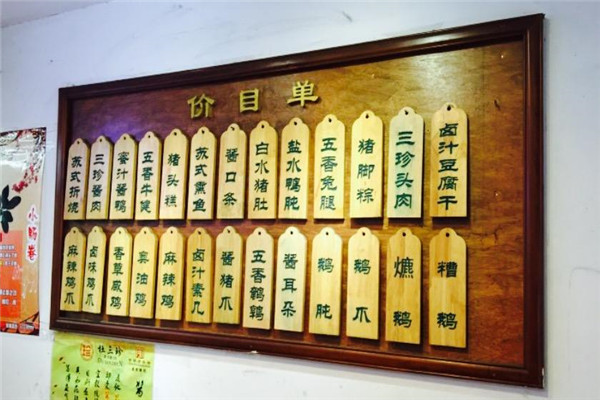 价目单
苏式折烧
三珍酱肉
蜜汁酱鸭
五香牛腱
猪头糕
苏式熏鱼
酱口条
白水猪肚
盐水鸭肫
五香兔腿
猪脚粽
三珍头肉
卤汁豆腐干
麻辣鸡爪
卤味鸡爪
香草咸鸡
真油鸡
麻辣鸡
卤汁素几
酱猪爪
五香鹌鹑
酱耳朵
鹅肫
鹅爪
爊鹅
糟鹅
小肠卷
杜三珍